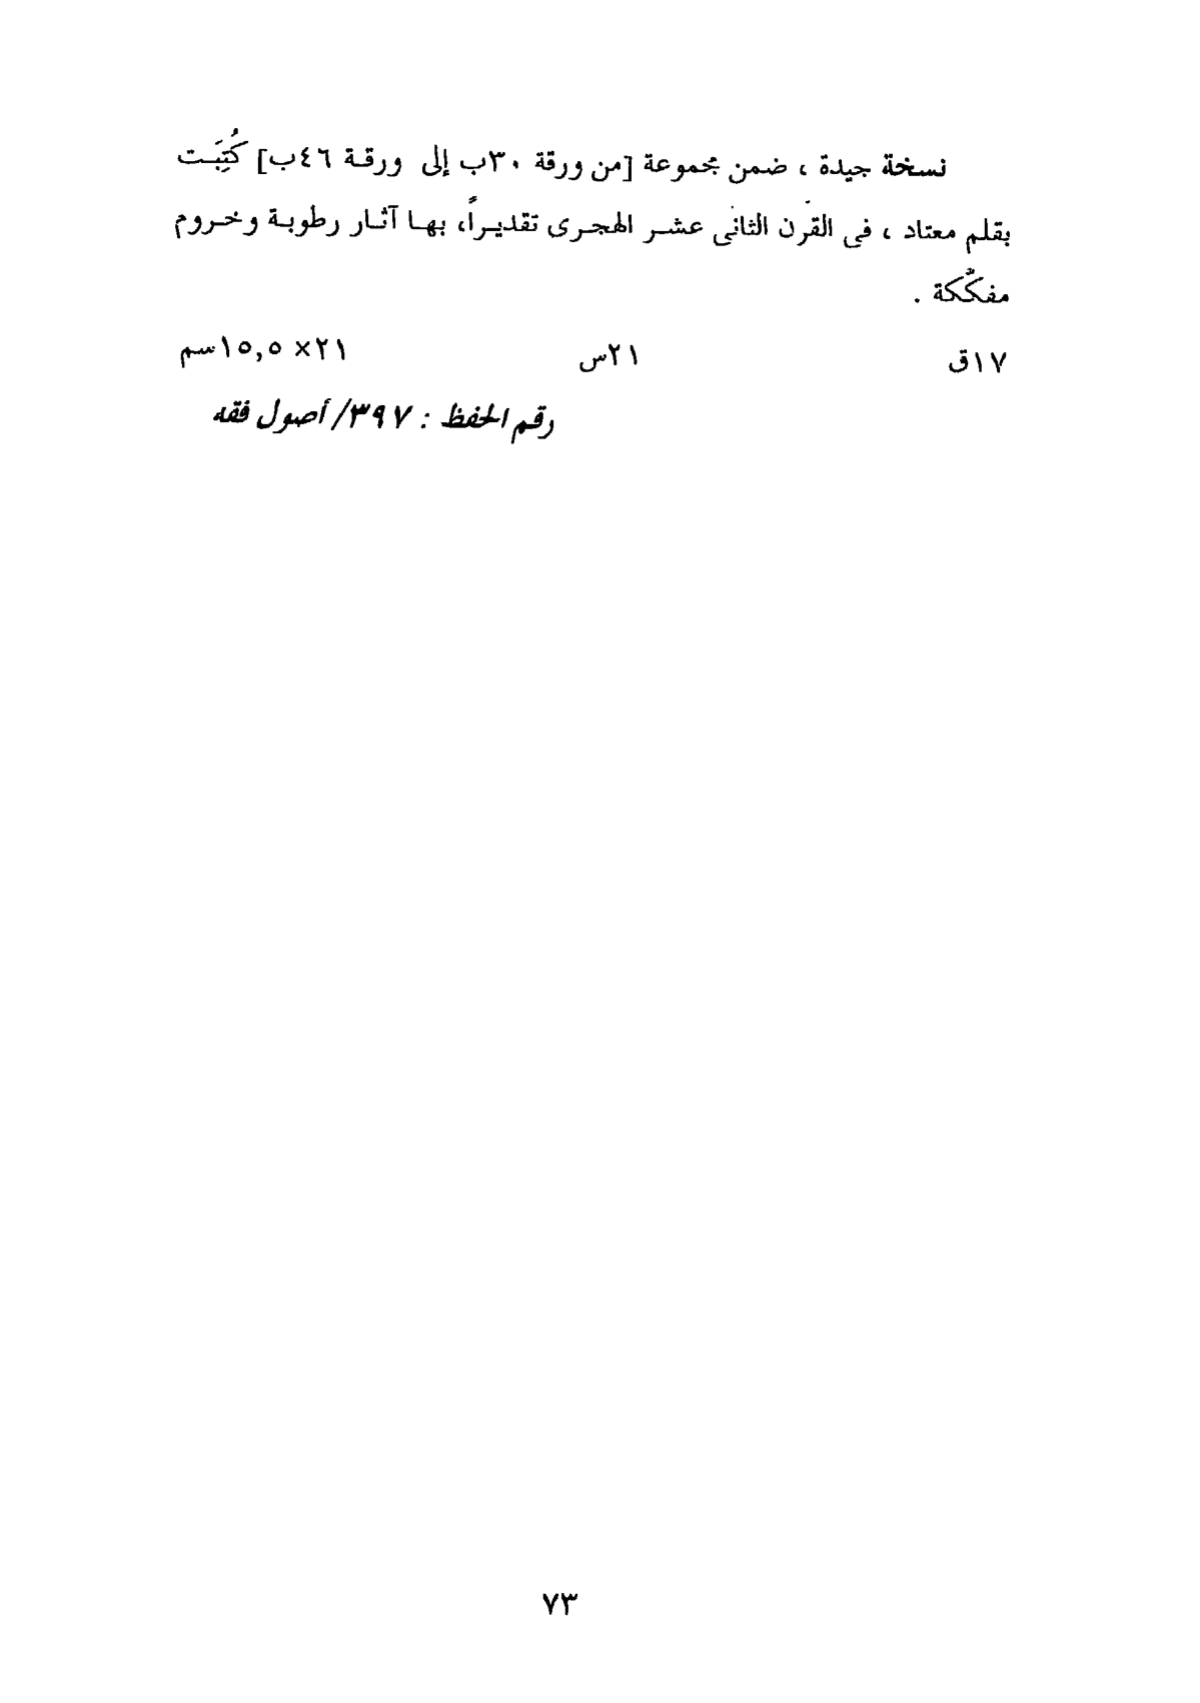 نسخة جيدة ، ضمن مجموعة [من ورقة ٣٠ب إلى ورقة ٤٦ب] كُتِبَت
بقلم معتاد ، فى القرن الثانى عشر الهجرى تقديراً، بها آثار رطوبة وخروم
مفكَّكة .
١٧ق ٢١س ٢١× ١٥,٥سم
رقم الحفظ : ٣٩٧/ أصول فقه
٧٣